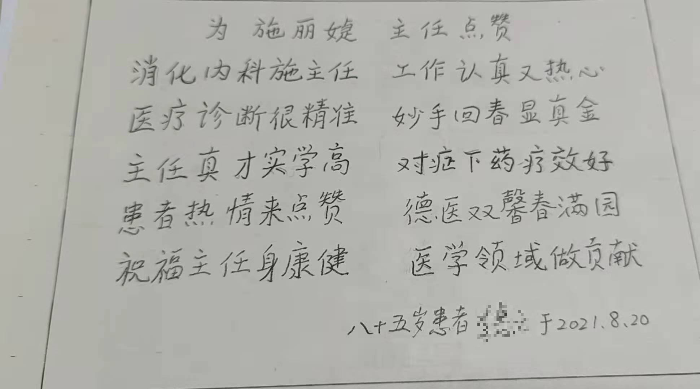 为施丽婕 主任点赞
消化内科施主任 工作认真又热心
医疗诊断很精准 妙手回春显真金
主任真才实学高 对症下药疗效好
患者热情来点赞 德医双馨春满园
祝福主任身康健 医学领域做贡献
八十五岁患者 于2021.8.20